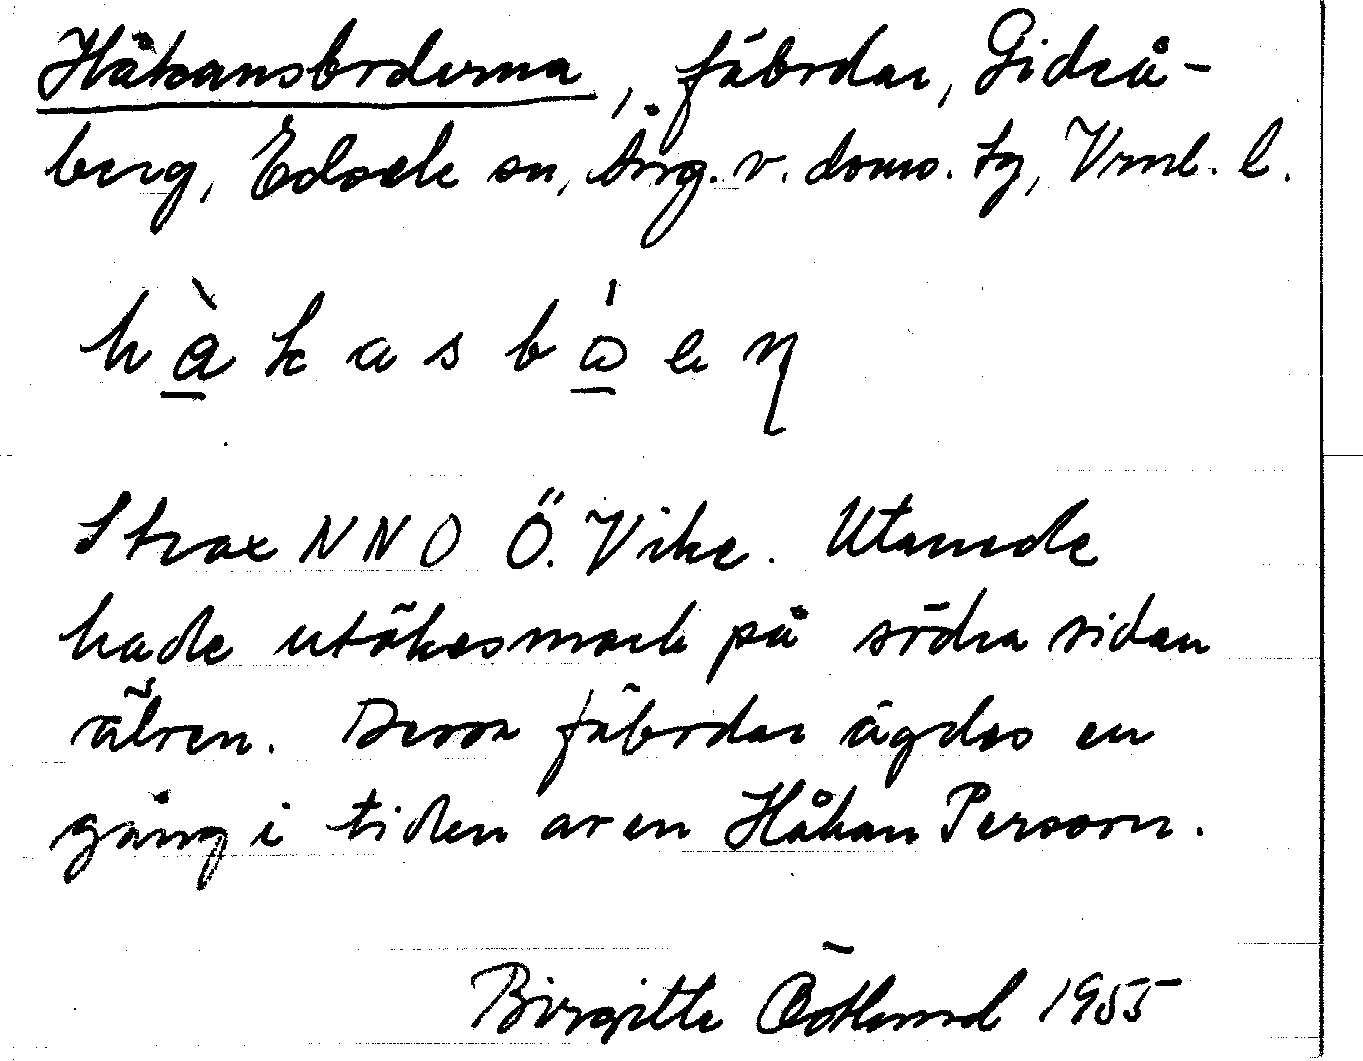 Håkansbodarna, fäbodar, Gideå-
berg, Edsele sn, Ång. v. doms. tg, Vrnl. l.
hàkasbóen
Strax NNO Ö. Vike. Utanede
hade utökesmark på södra sidan
älven. Dessa fäbodar ägdes en
gång i tiden av en Håkan Persson.
Birgitte Östlund 1955